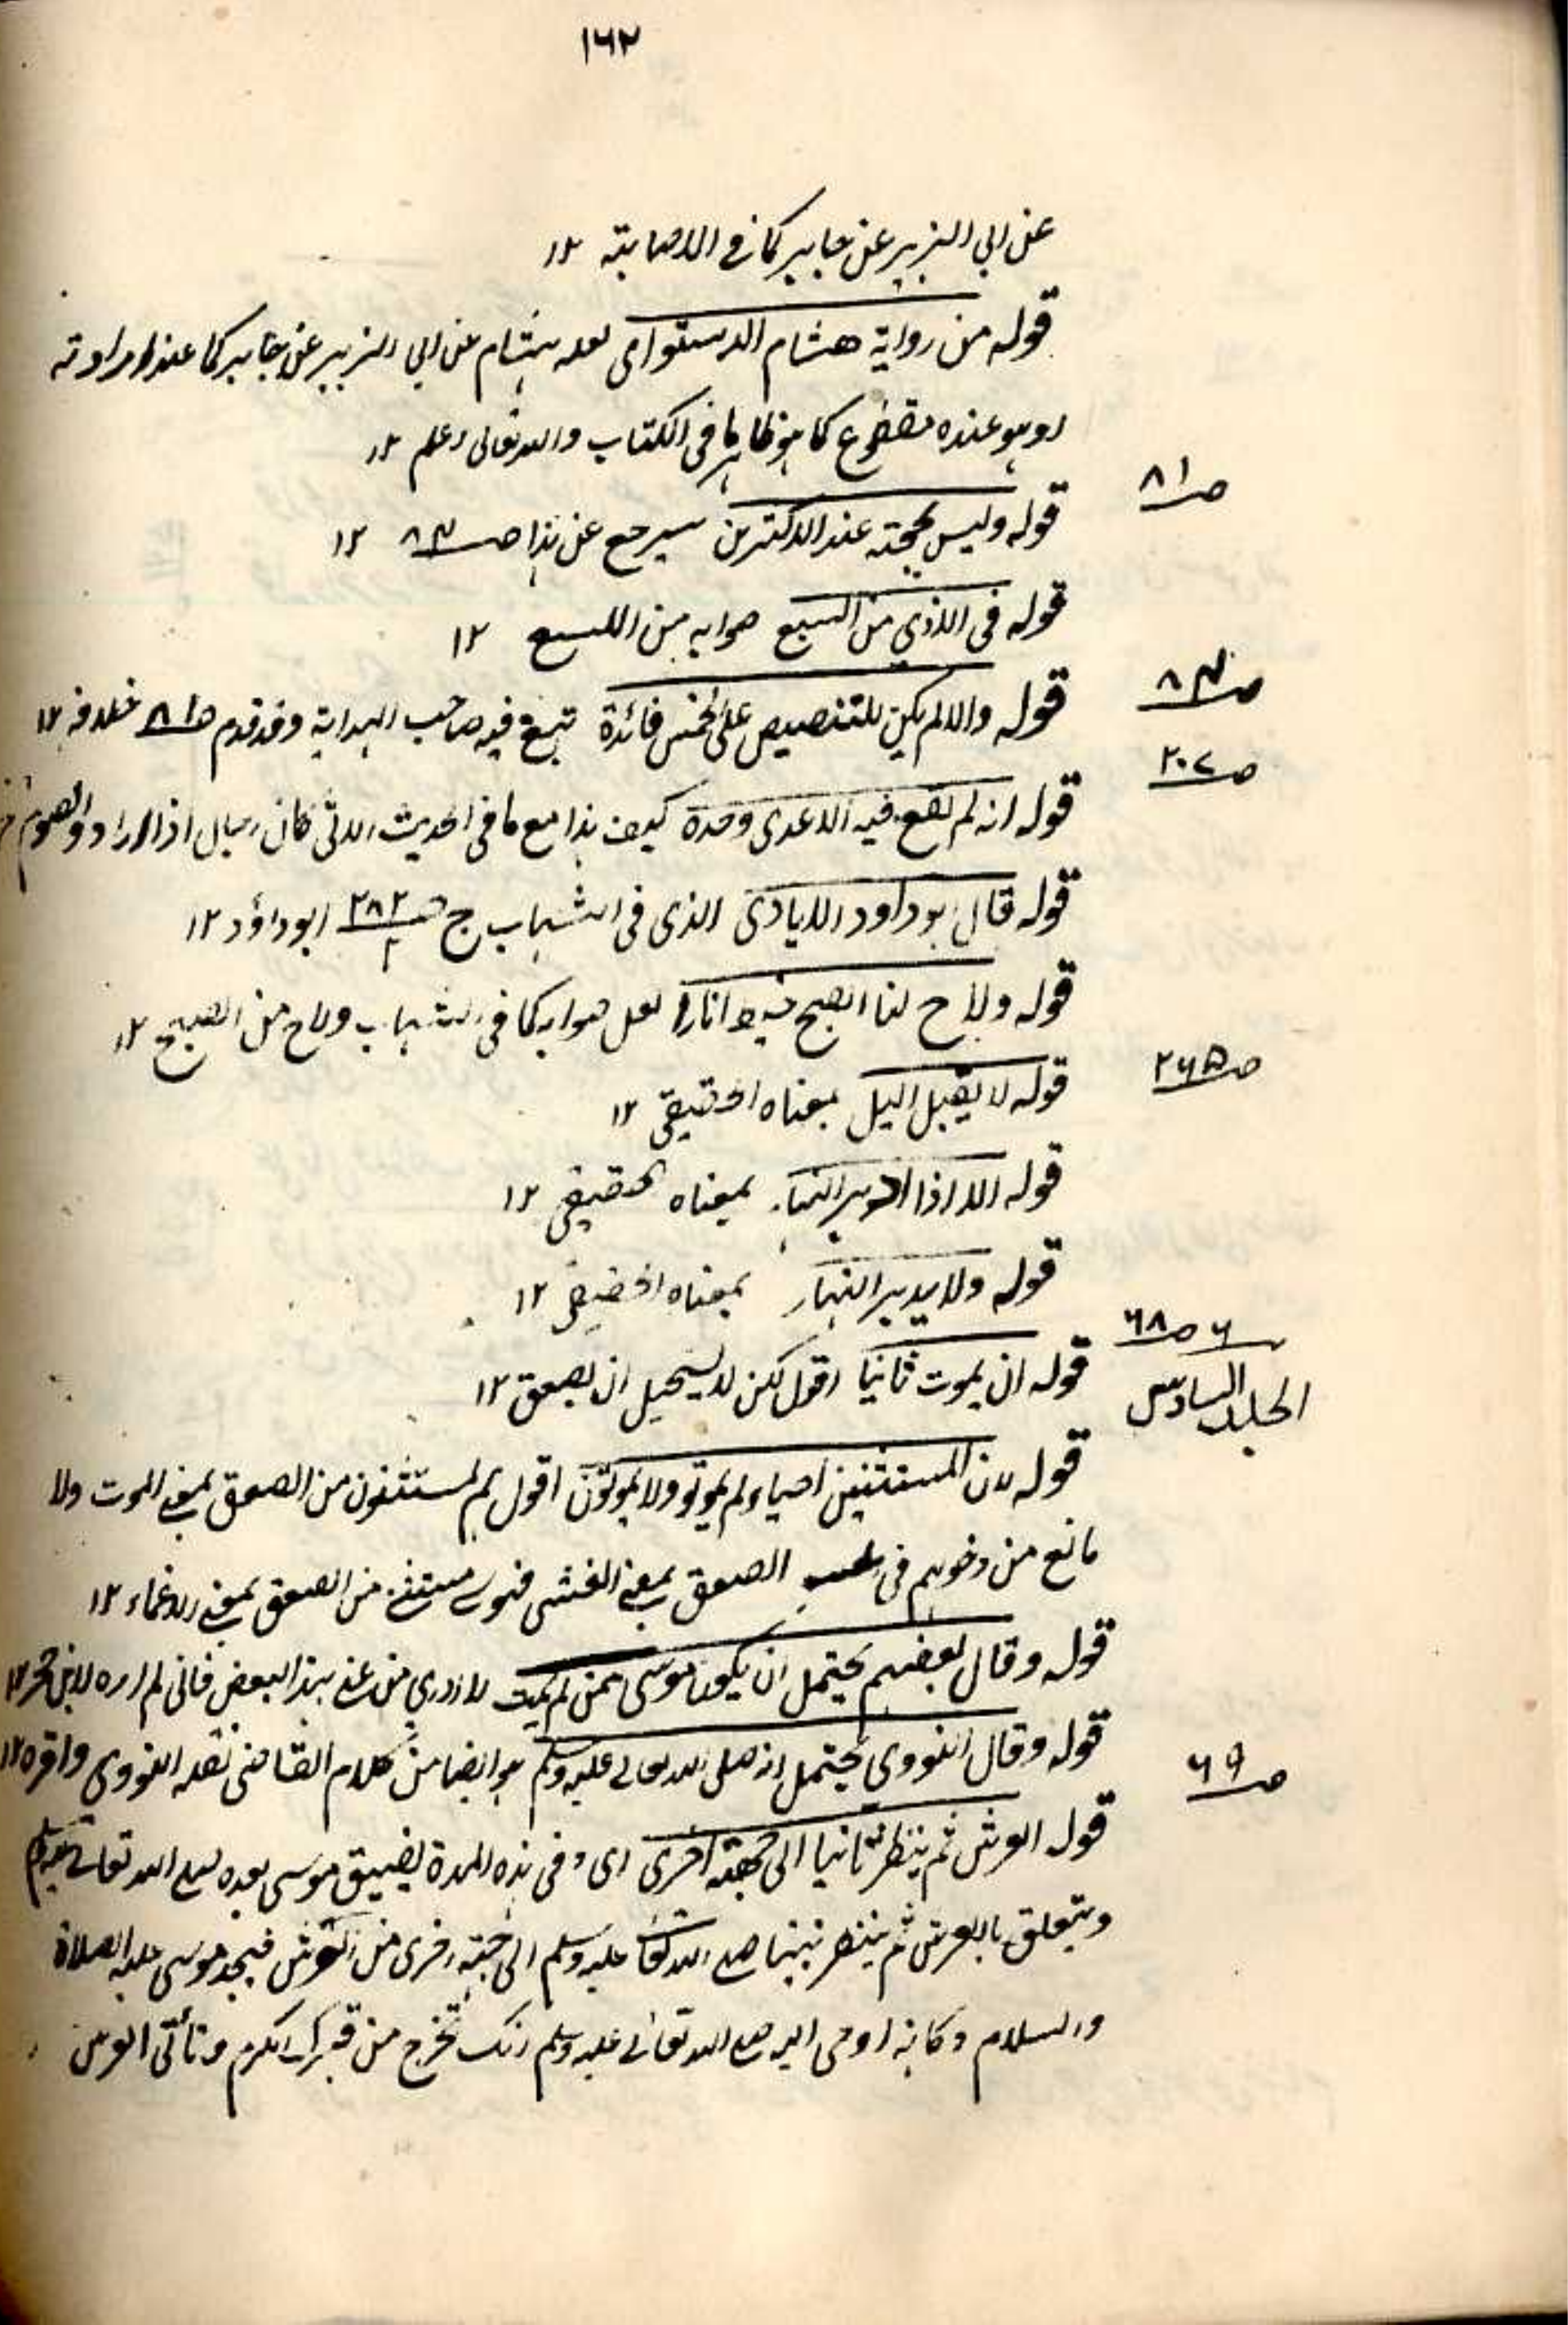 ۱۶۲
عن ابی الزبیر عن جابر کما فی الاصابة ۱۲
قوله من روایة هشام الدستوای لعله هشام عن ابی الزبیر عن جابر کما عند
وهو عنده مقطوع کما هو ظاهر ما فی الکتاب والله تعالی اعلم ۱۲
صـ۸۱
قوله ولیس بحجة عند الاکثرین سیرجع عن هذا صـ۸۳ ۱۲
قوله فی الاذی من السبع صوابه من اللسع ۱۲
صـ۸۳
قوله والا لم یکن للتنصیص علی الخمس فائدة تبع فیه صاحب الهدایة وقد قدم صـ۸۱ خلافه ۱۲
صـ۲۰۷
قوله انه لم یقع فیه الا عدی وحده کیف هذا مع ما فی الحدیث الاتی کان رجال اذا ارادوا الصوم
قوله قال ابو داود الایادی الذی فی الشهاب ج ۲ صـ۲۸۲ ابو داؤد ۱۲
قوله ولاح لنا الصبح خیط انارا لعل صوابه کما فی الشهاب ولاح من الصبح ۱۲
صـ۲۶۵
قوله لا یقبل الیل بمعناه الحقیقی ۱۲
قوله الا اذا ادبر النهار بمعناه الحقیقی ۱۲
قوله ولا یدبر النهار بمعناه الحقیقی ۱۲
۶ صـ۶۸
الجلد السادس
قوله ان یموت ثانیا اقول لکن لا یستحیل ان یصعق ۱۲
قوله لان المستثنین احیاء لم یموتو ولا یموتون اقول هم مستثنون من الصعق بمعنی الموت ولا
مانع من دخولهم فی الصعق بمعنی الغشی فموسی مستثنی من الصعق بمعنی الاغماء ۱۲
قوله وقال بعضهم یحتمل ان یکون موسی ممن لم یمت لا ادری من عنی بهذا البعض فانی لم اره لابن حجر ۱۲
صـ۶۹
قوله وقال النووی یحتمل انه صلی الله تعالی علیه وسلم هو ایضا من کلام القاضی نقله النووی واقره ۱۲
قوله العرش ثم ینظر ثانیا الی جهة اخری ای وفی هذه المدة یفیق موسی بعده صلی الله تعالی علیه وسلم
ویتعلق بالعرش ثم ینظر نبینا صلی الله تعالی علیه وسلم الی جهة اخری من العرش فیجد موسی علیه الصلاة
والسلام وکانه اوحی الیه صلی الله تعالی علیه وسلم انک تخرج من قبرک الکرم وتأتی العرش